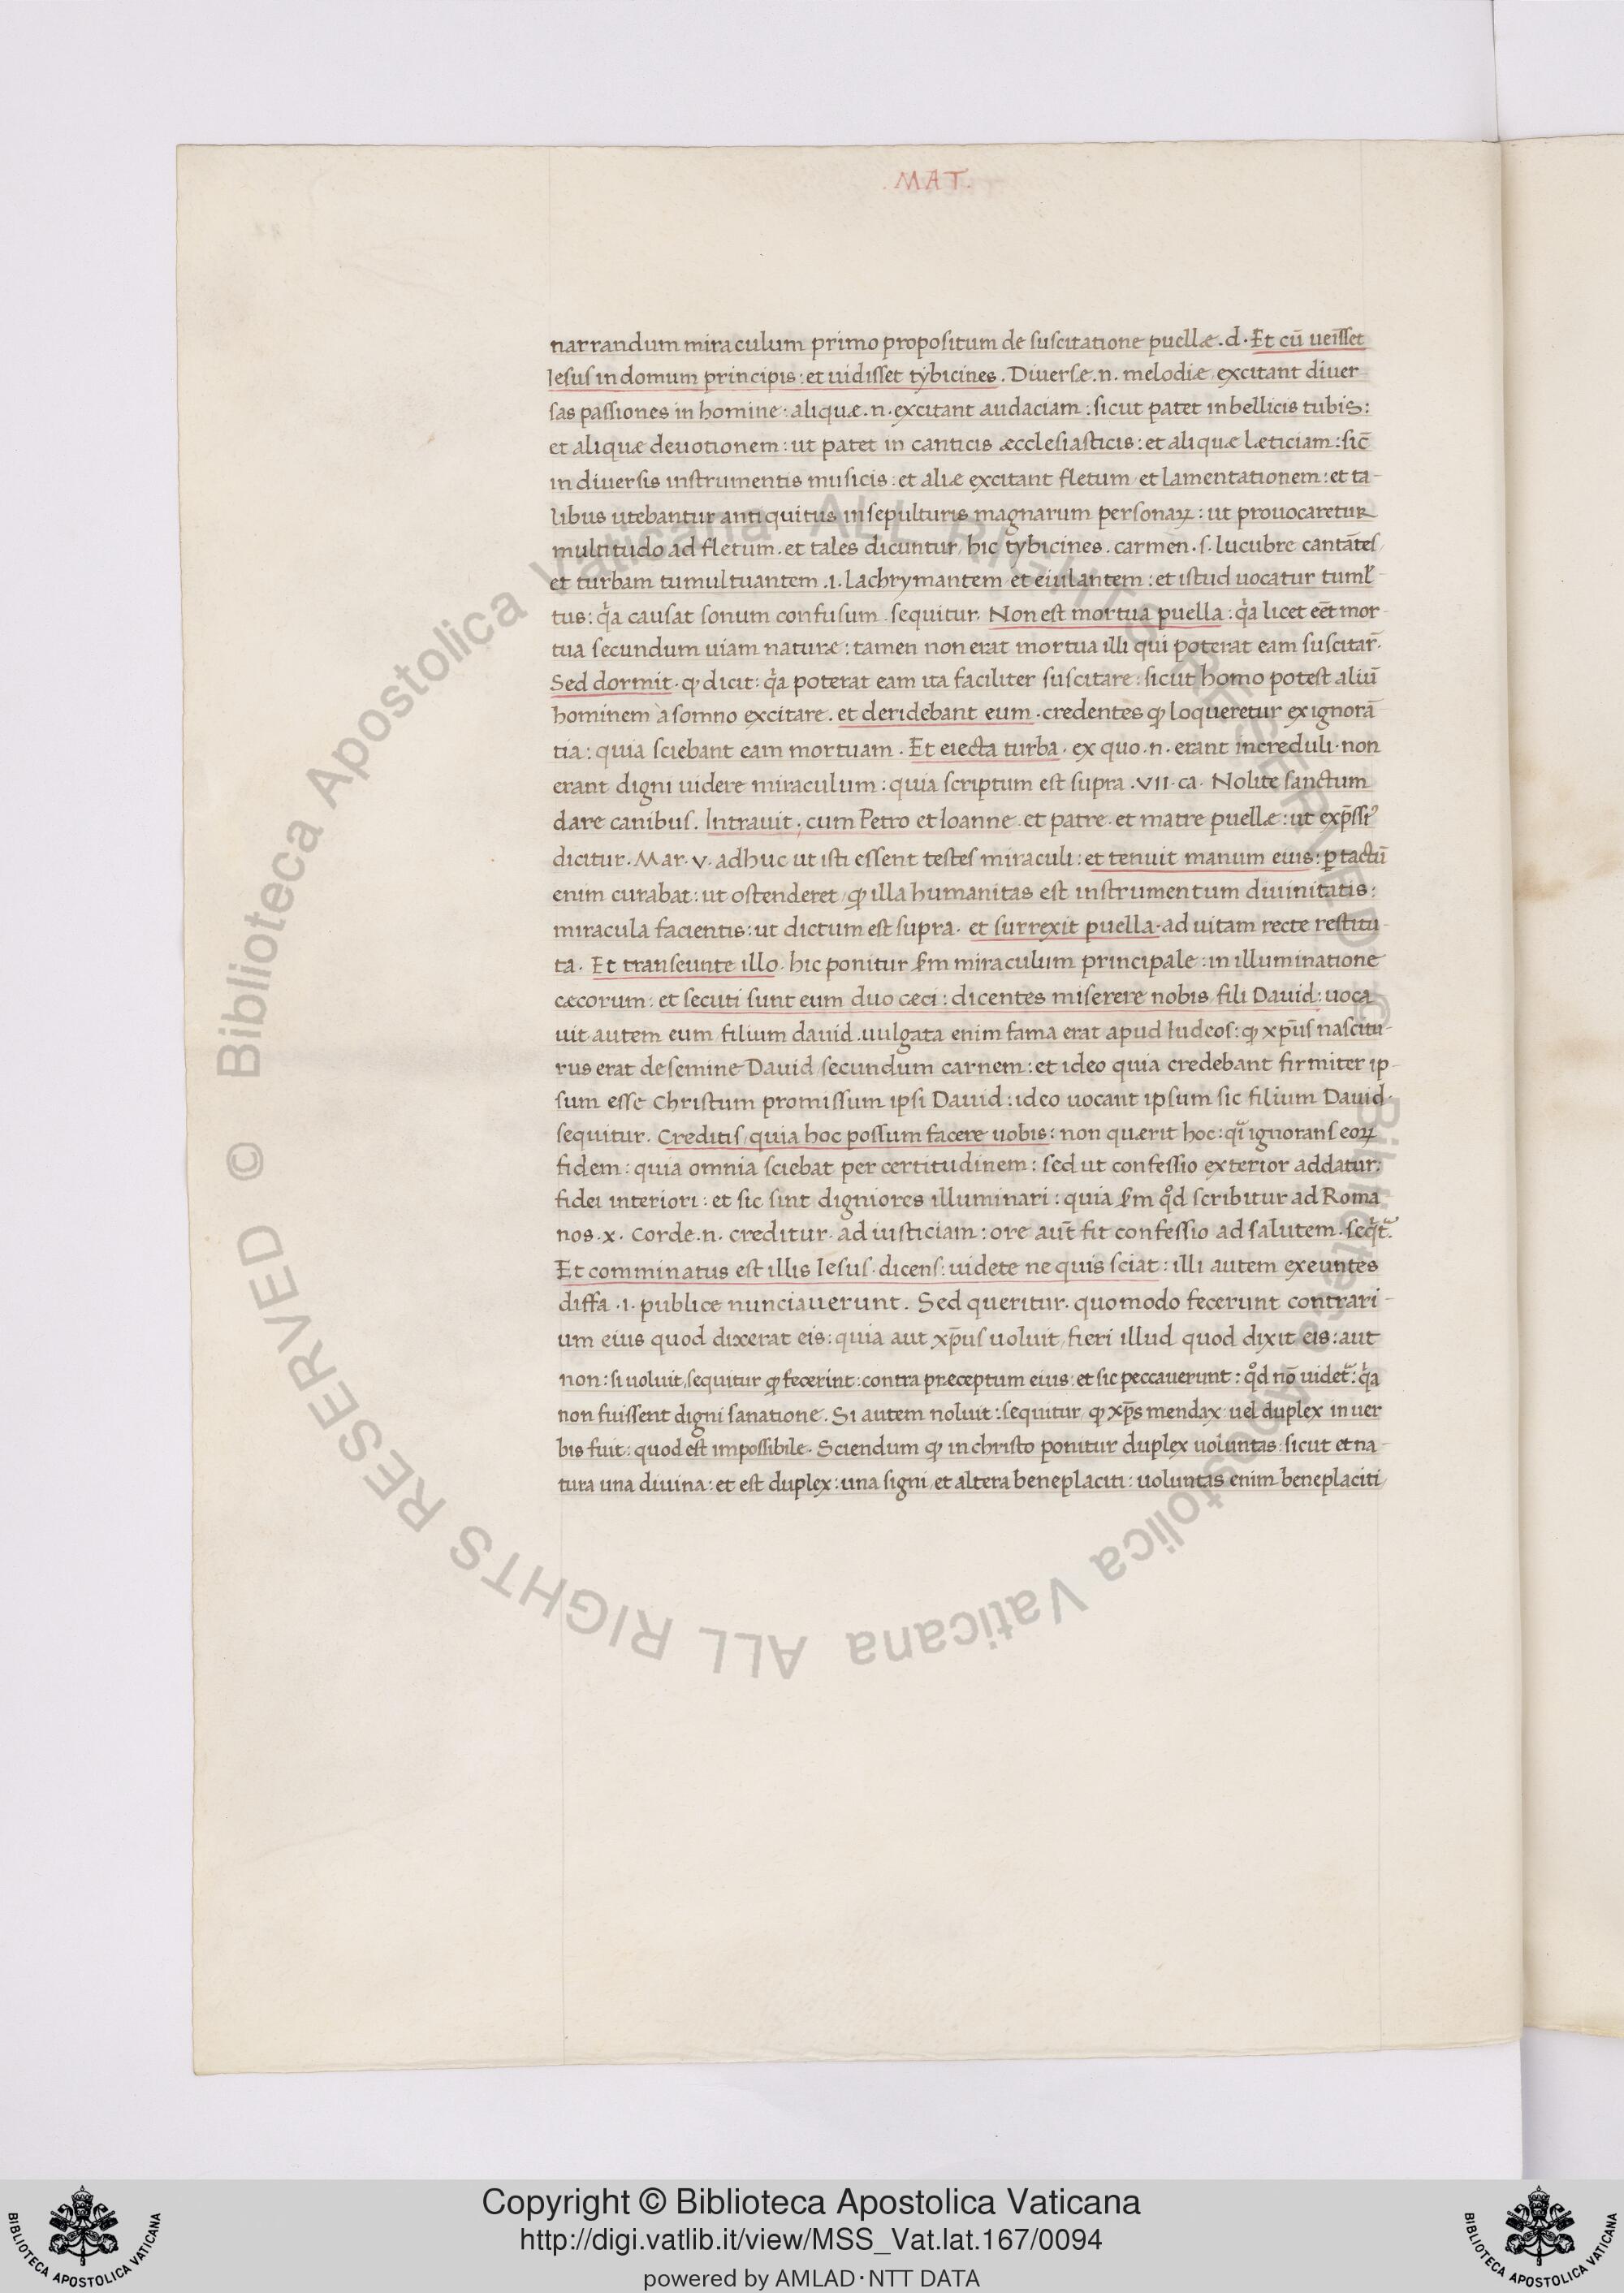 .MAT.
narrandum miraculum primo propositum de suscitatione puellæ.d. Et cū ueīsset
Iesus in domum principis: et uidisset tybicines. Diuersæ.n. melodiæ excitant diuer
sas passiones in homine: aliquæ.n. excitant audaciam: sicut patet in bellicis tubis:
et aliquæ deuotionem: ut patet in canticis æcclesiasticis: et aliquæ læticiam: sic̄
in diuersis instrumentis musicis: et aliæ excitant fletum et lamentationem: et ta-
libus utebantur antiquitus in sepulturis magnarum personaꝝ: ut prouocaretur
multitudo ad fletum. et tales dicuntur, hic tybicines. carmen.s. lucubre cantātes,
et turbam tumultuantem .i. lachrymantem et eiulantem: et istud uocatur tuml̄-
tus: qͥa causat sonum confusum. sequitur. Non est mortua puella: qͥa licet eēt mor-
tua secundum uiam naturæ: tamen non erat mortua illi qui poterat eam suscitar̄.
Sed dormit. ꝙ dicit: qͥa poterat eam ita faciliter suscitare: sicut homo potest aliū
hominem à somno excitare. et deridebant eum. credentes ꝙ loqueretur ex ignorā
tia: quia sciebant eam mortuam. Et eiecta turba. ex quo.n. erant increduli. non
erant digni uidere miraculum: quia scriptum est supra .VII. ca. Nolite sanctum
dare canibus. Intrauit: cum Petro et Ioanne et patre. et matre puellæ: ut exp̄ssꝰ
dicitur. Mar. v. adhuc ut isti essent testes miraculi: et tenuit manum eius: ꝑ tactū
enim curabat: ut ostenderet, ꝙ illa humanitas est instrumentum diuinitatis:
miracula facientis: ut dictum est supra. et surrexit puella. ad uitam recte restitu-
ta. Et transeunte illo. hic ponitur ẜm miraculum principale: in illuminatione
cæcorum: et secuti sunt eum duo ceci: dicentes miserere nobis fili Dauid: uoca
uit autem eum, filium dauid. uulgata enim fama erat apud Iudeos: ꝙ xp̄us nascitu-
rus erat de semine Dauid secundum carnem: et ideo quia credebant firmiter ip-
sum esse Christum promissum ipsi Dauid: ideo uocant ipsum sic filium Dauid.
sequitur. Creditis, quia hoc possum facere uobis: non quærit hoc: qͣi ignorans eoꝝ
fidem: quia omnia sciebat per certitudinem: sed ut confessio exterior addatur:
fidei interiori: et sic sint digniores illuminari: quia ẜm qͦd scribitur ad Roma
nos. x. Corde.n. creditur. ad iusticiam: ore aut̄ fit confessio ad salutem. seqͥtᷣ.
Et comminatus est illis Iesus. dicens: uidete ne quis sciat: illi autem exeuntes
diffa .i. publice nunciauerunt. Sed queritur. quomodo fecerunt contrari-
um eius quod dixerat eis: quia aut xp̄us uoluit, fieri illud quod dixit eis: aut
non: si uoluit, sequitur ꝙ fecerint: contra preceptum eius: et sic peccauerunt: qͦd nō uidetᷣ: qͥa
non fuissent digni sanatione. Si autem noluit: sequitur, ꝙ xp̄s mendax uel duplex in uer
bis fuit: quod est impossibile. Sciendum ꝙ in christo ponitur duplex uoluntas: sicut et na-
tura una diuina: et est duplex: una signi, et altera beneplaciti: uoluntas enim beneplaciti,
Copyright © Biblioteca Apostolica Vaticana
http://digi.vatlib.it/view/MSS_Vat.lat.167/0094
powered by AMLAD·NTT DATA
BIBLIOTECA APOSTOLICA VATICANA
BIBLIOTECA APOSTOLICA VATICANA
© Biblioteca Apostolica Vaticana ALL RIGHTS RESERVED
© Biblioteca Apostolica Vaticana ALL RIGHTS RESERVED